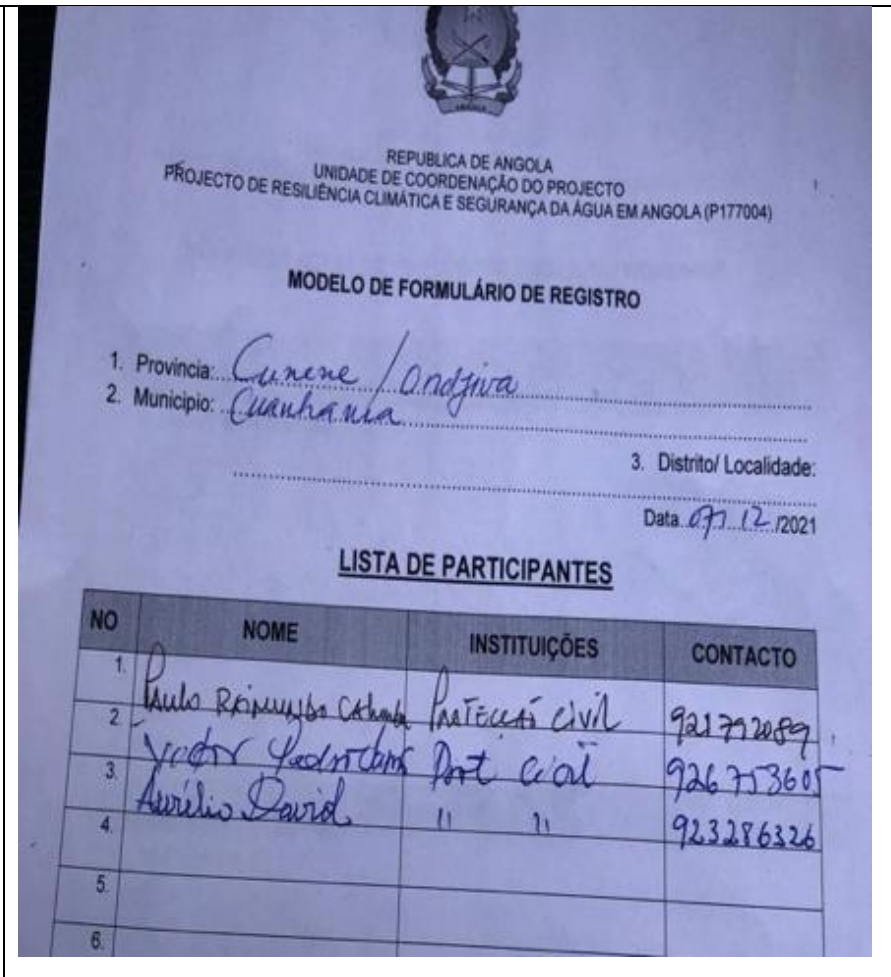 ANGOLA
REPUBLICA DE ANGOLA
UNIDADE DE COORDENAÇÃO DO PROJECTO
PROJECTO DE RESILIÊNCIA CLIMÁTICA E SEGURANÇA DA ÁGUA EM ANGOLA (P177004)
MODELO DE FORMULÁRIO DE REGISTRO
1. Provincia: Cunene / Ondjiva
2. Municipio: Cuanhama
3. Distrito/ Localidade:
Data 07 12 /2021
LISTA DE PARTICIPANTES
NO NOME INSTITUIÇÕES CONTACTO
1. Paulo Raimundo Civil 921792089
2. Victor Prot Civil 926753605
3. Aurélio David " " 923286326
4.
5.
6.